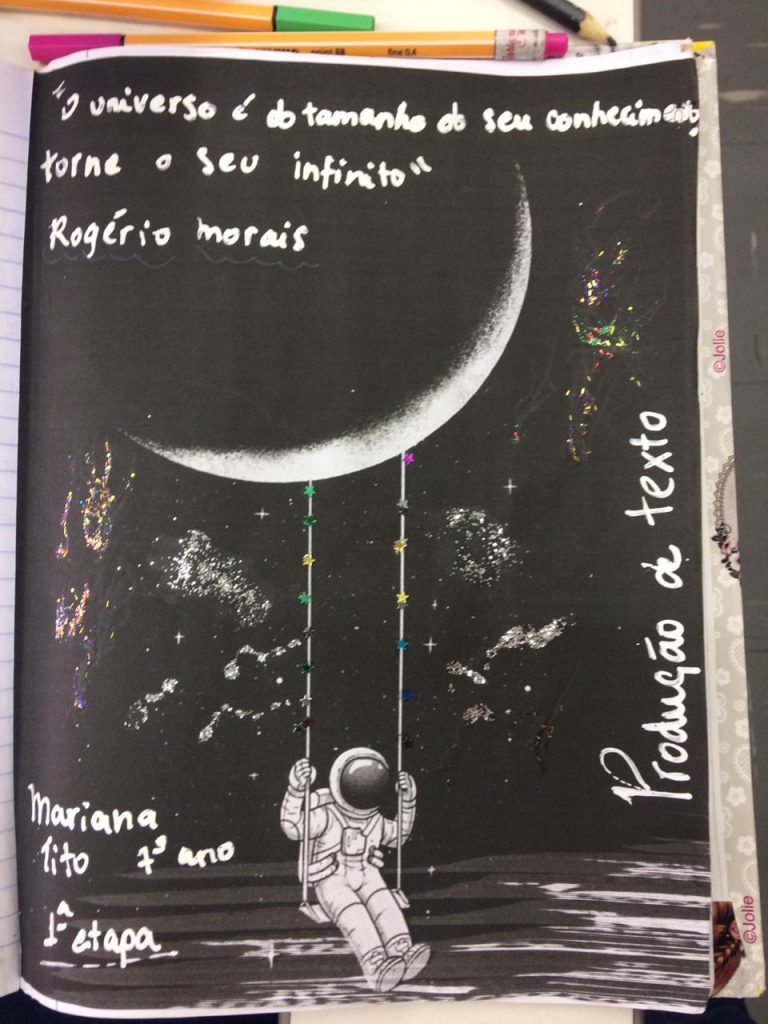 point 88 fine 0.4
"O universo é do tamanho do seu conhecimento,
torne o seu infinito"
Rogério morais
©Jolie
Produção de texto
Mariana
Tito 7º ano
1ª etapa
©Jolie